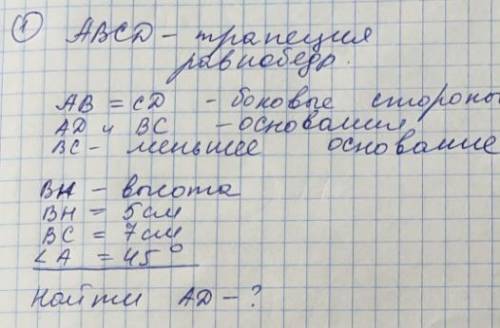 ① ABCD - трапеция
равнобедр.
AB = CD - боковые стороны
AD и BC - основания
BC - меньшее основание
BH - высота
BH = 5 см
BC = 7 см
∠A = 45°
Найти AD - ?